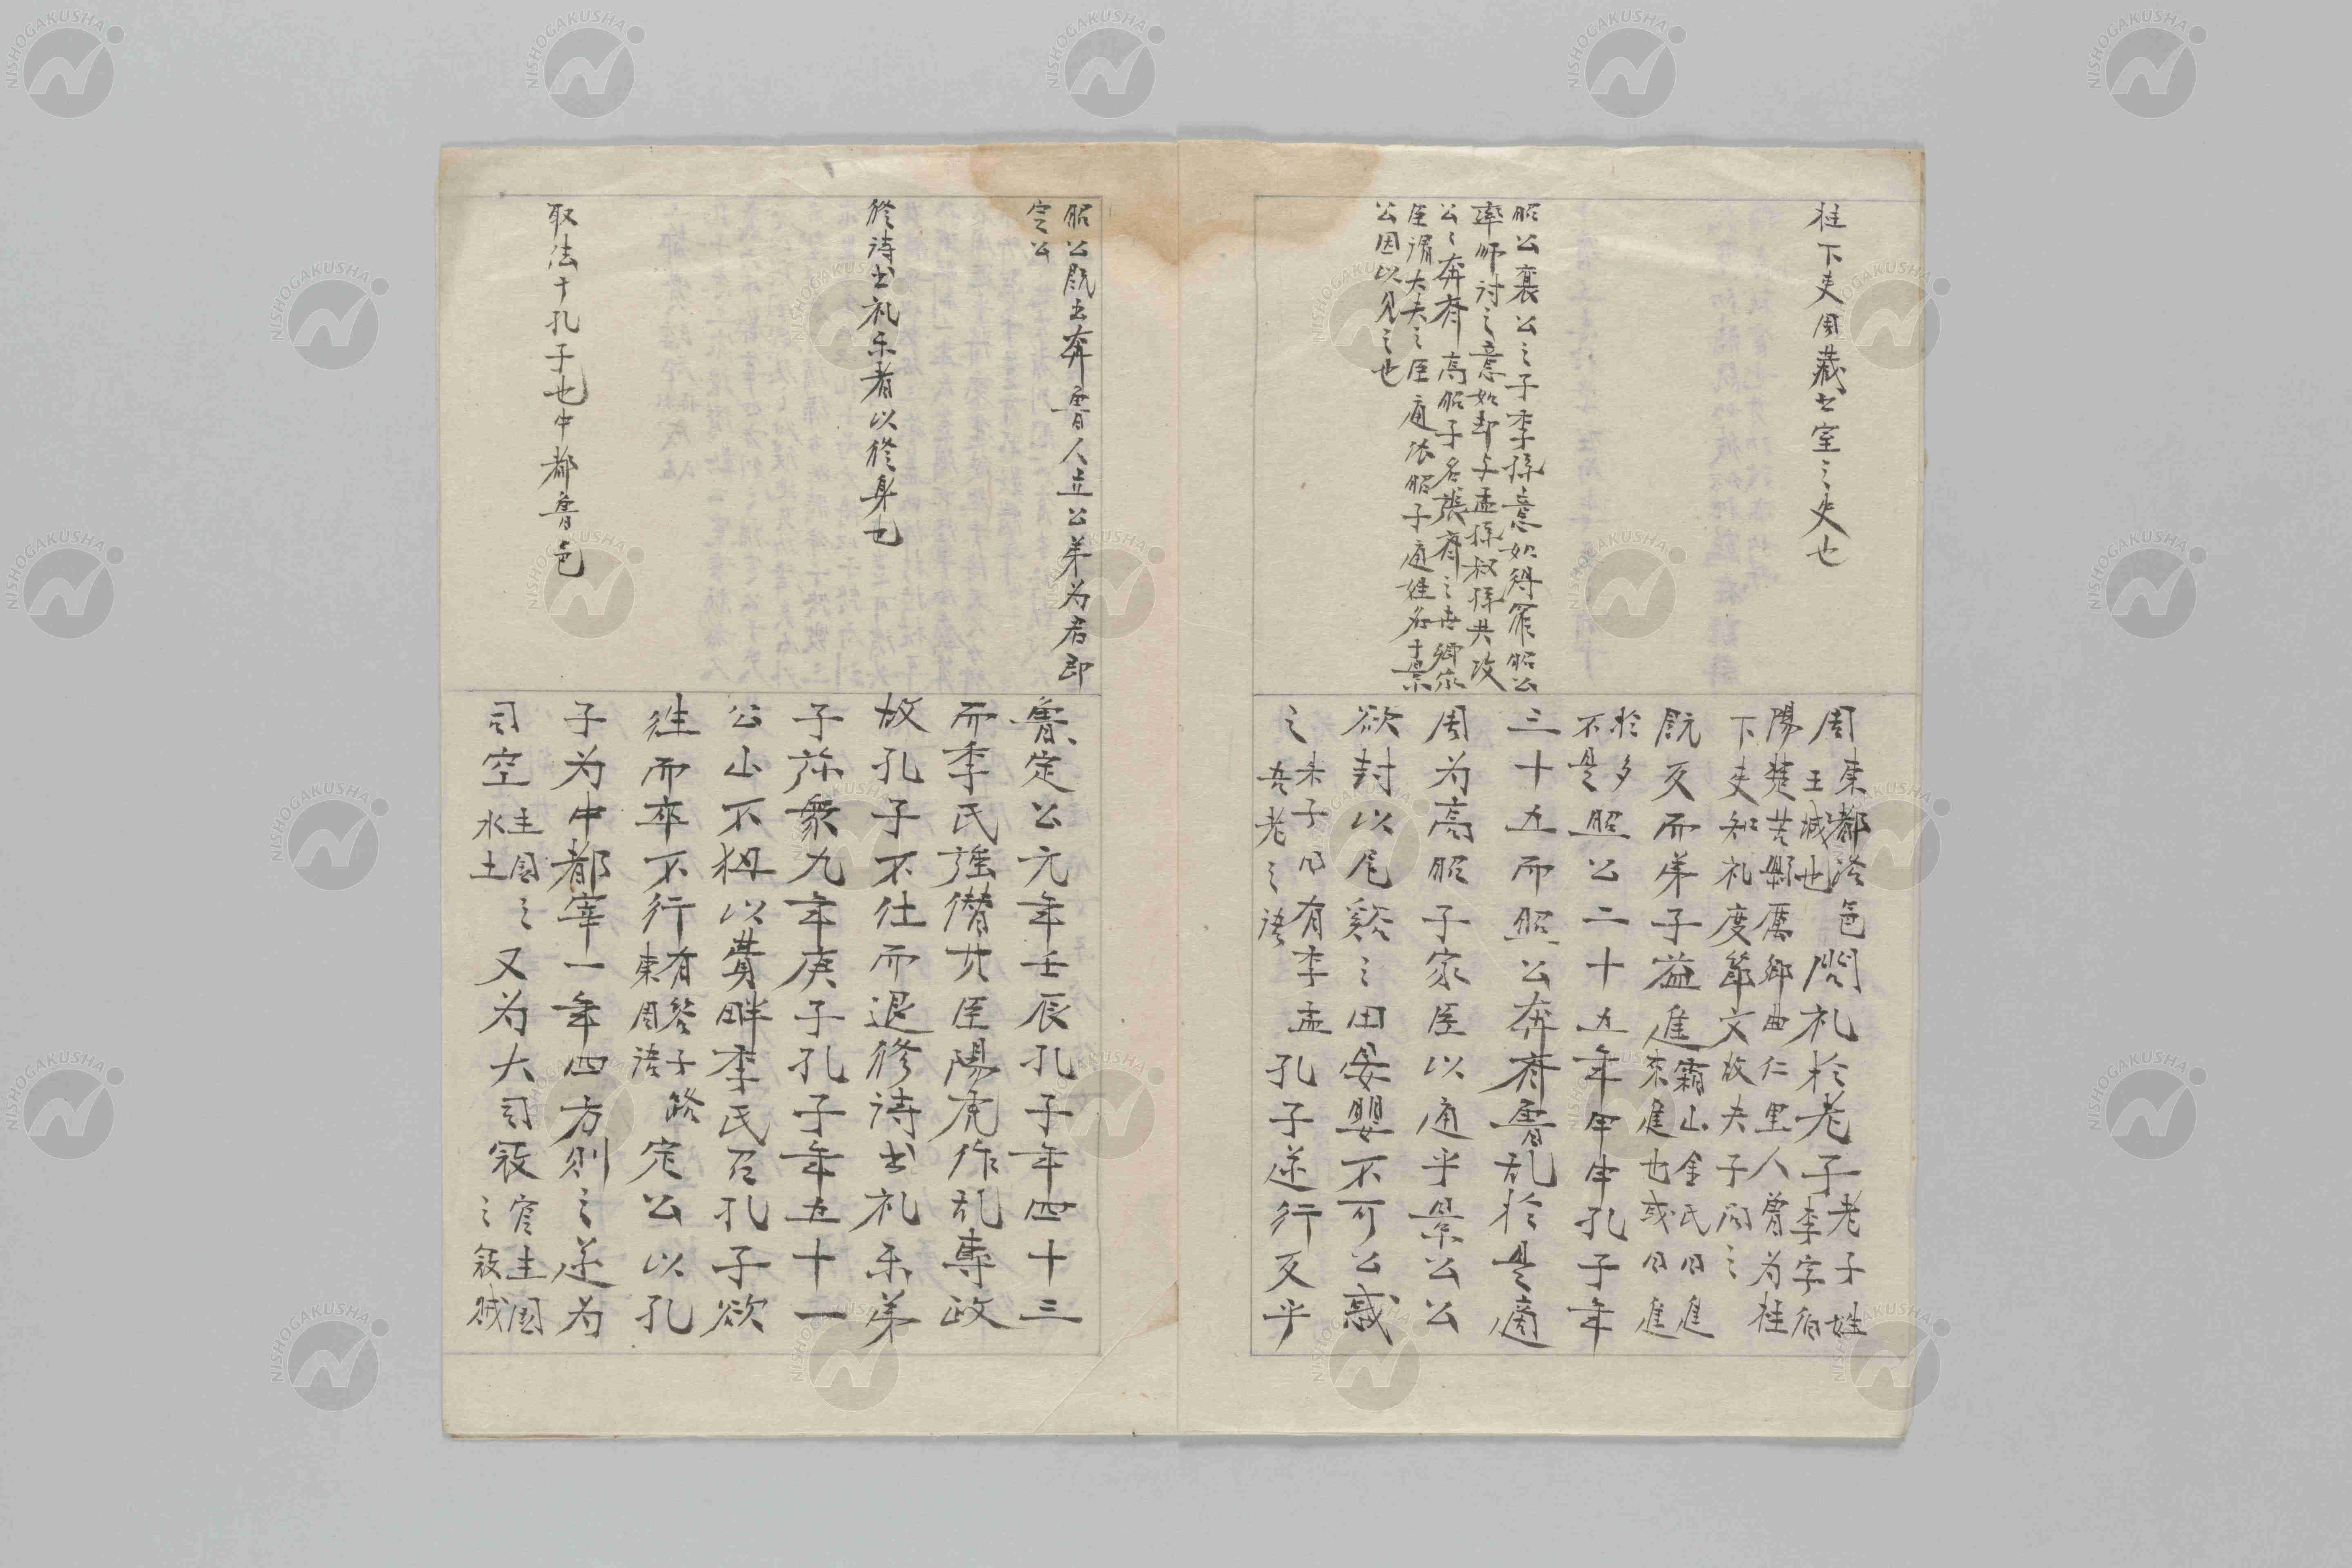 柱下吏周藏书室之吏也
昭公襄公之子季孫意如得罪昭公
率师討之意如却与孟孫叔孫共攻
公公奔齊高昭子名張齊之世卿家
臣謂大夫之臣通依昭子通姓名于景
公因以見之也
周東都洛邑王城也問礼於老子老子姓李字伯
陽楚苦縣厲鄉曲仁里人曾为柱
下吏知礼度節文故夫子问之
既反而弟子益進霜山金氏曰進来進也或曰進
於多不是昭公二十五年甲申孔子年
三十五而昭公奔齊魯乱於是適
周为高昭子家臣以通乎景公公
欲封以尼谿之田晏嬰不可公惑
之未子曰有季孟吾老之語孔子遂行反乎
昭公既出奔魯人立公弟为君即
定公
修诗书礼乐者以修身也
取法于孔子也中都魯邑
魯定公元年壬辰孔子年四十三
而季氏強僣其臣陽虎作乱專政
故孔子不仕而退修诗书礼乐弟
子弥衆九年庚子孔子年五十一
公山不狃以費畔季氏召孔子欲
往而卒不行有答子路東周語定公以孔
子为中都宰一年四方則之遂为
司空主国之水土又为大司寇官主国之寇贼
NISHOGAKUSHA